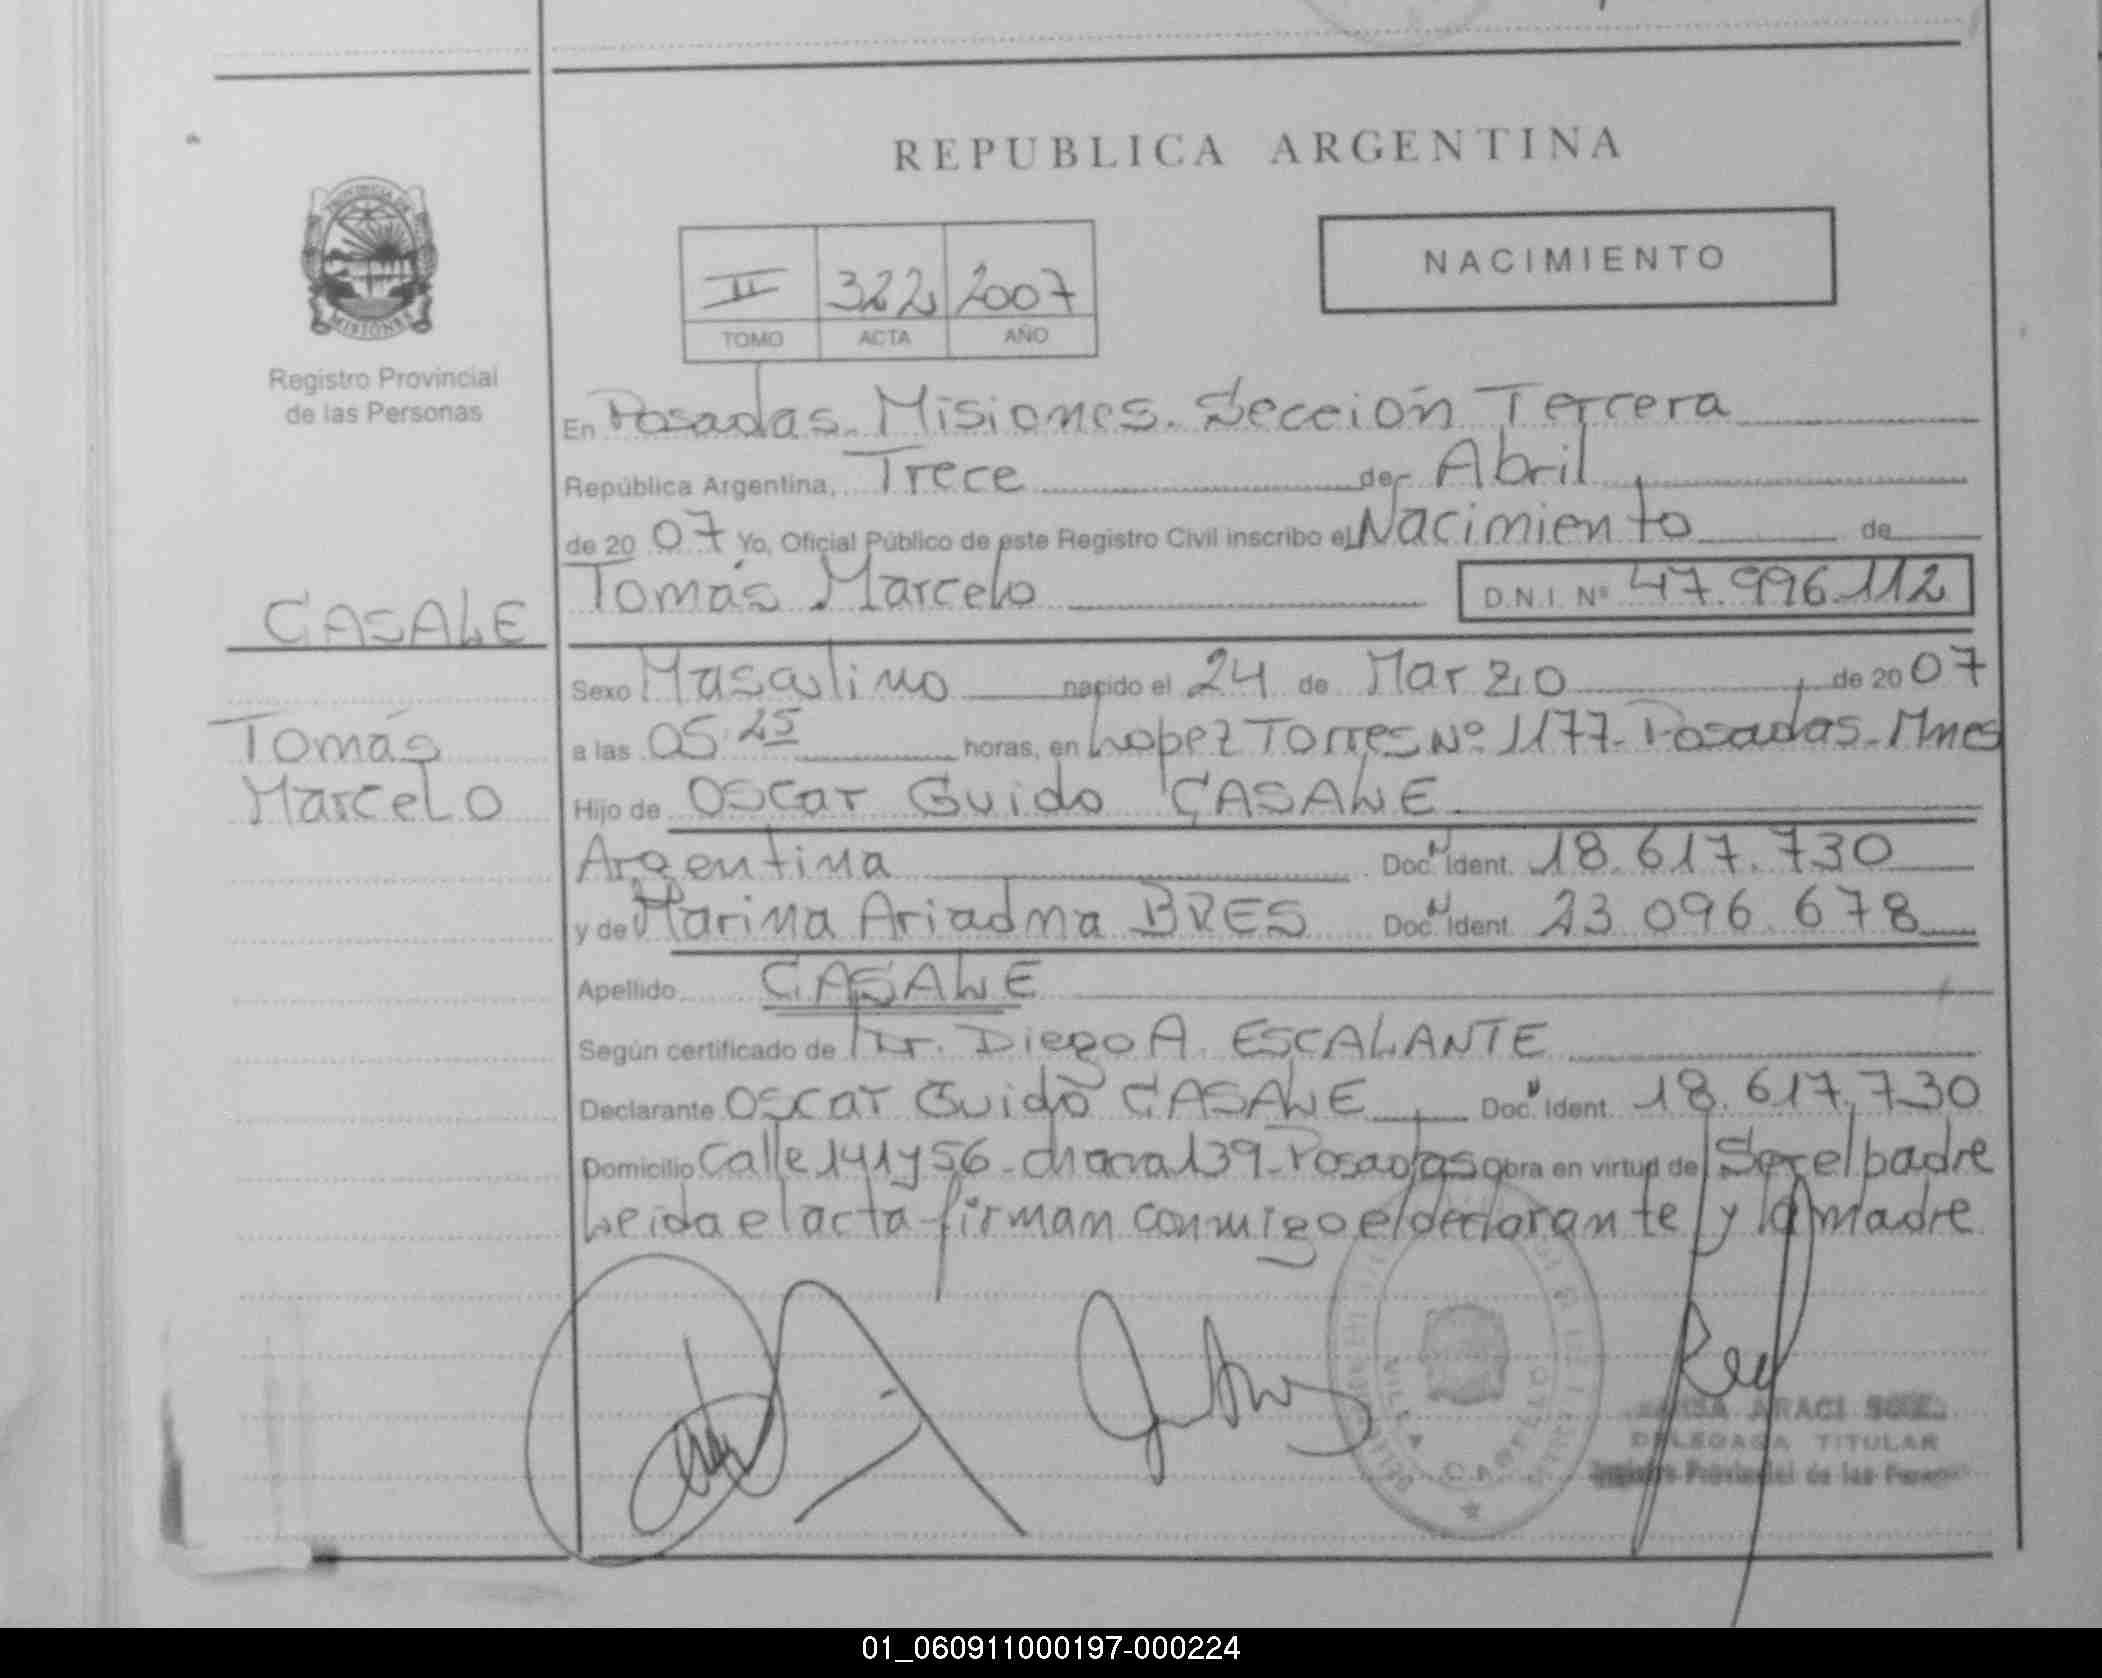 REPUBLICA ARGENTINA
PROVINCIA DE
MISIONES
Registro Provincial
de las Personas
II 322 2007
TOMO ACTA AÑO
NACIMIENTO
En Posadas. Misiones. Sección Tercera
República Argentina, Trece de Abril
de 2007 Yo, Oficial Público de este Registro Civil inscribo el Nacimiento de
CASALE
Tomás Marcelo D.N.I. Nº 47.996.112
Sexo Masculino nacido el 24 de Marzo de 2007
Tomás
Marcelo
a las 05.25 horas, en Lopez Torres Nº 1177. Posadas. Mnes
Hijo de Oscar Guido CASALE
Argentina Doc.N Ident. 18.617.730
y de Marina Ariadna BRES Doc.N Ident. 23.096.678
Apellido CASALE
Según certificado de Dr. Diego A. ESCALANTE
Declarante Oscar Guido CASALE Doc.N Ident. 18.617.730
Domicilio Calle 141 y 56 - chacra 139 - Posadas obra en virtud de Ser el padre
Leida el acta firman conmigo el declarante y la madre
ARACI
DELEGADA TITULAR
Registro Provincial de las Personas
01_060911000197-000224